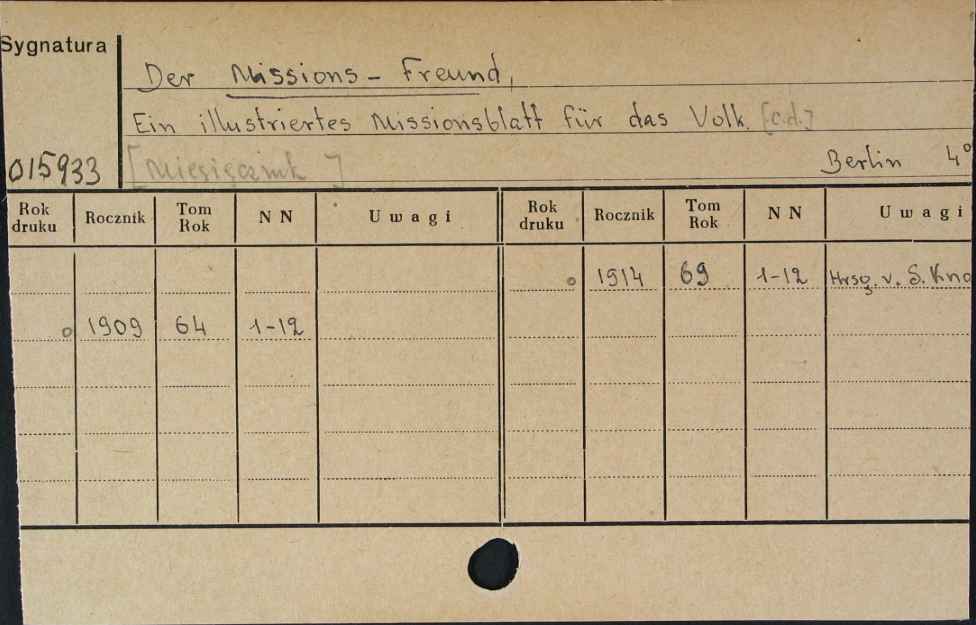 Sygnatura
Der Missions - Freund,
Ein illustriertes Missionsblatt für das Volk. [c.d.]
015933 [Miesięcznik] Berlin 4°
Rok druku Rocznik Tom Rok N N Uwagi Rok druku Rocznik Tom Rok N N Uwagi
o 1914 69 1-12 Hrsg. v. S. Kna
o 1909 64 1-12